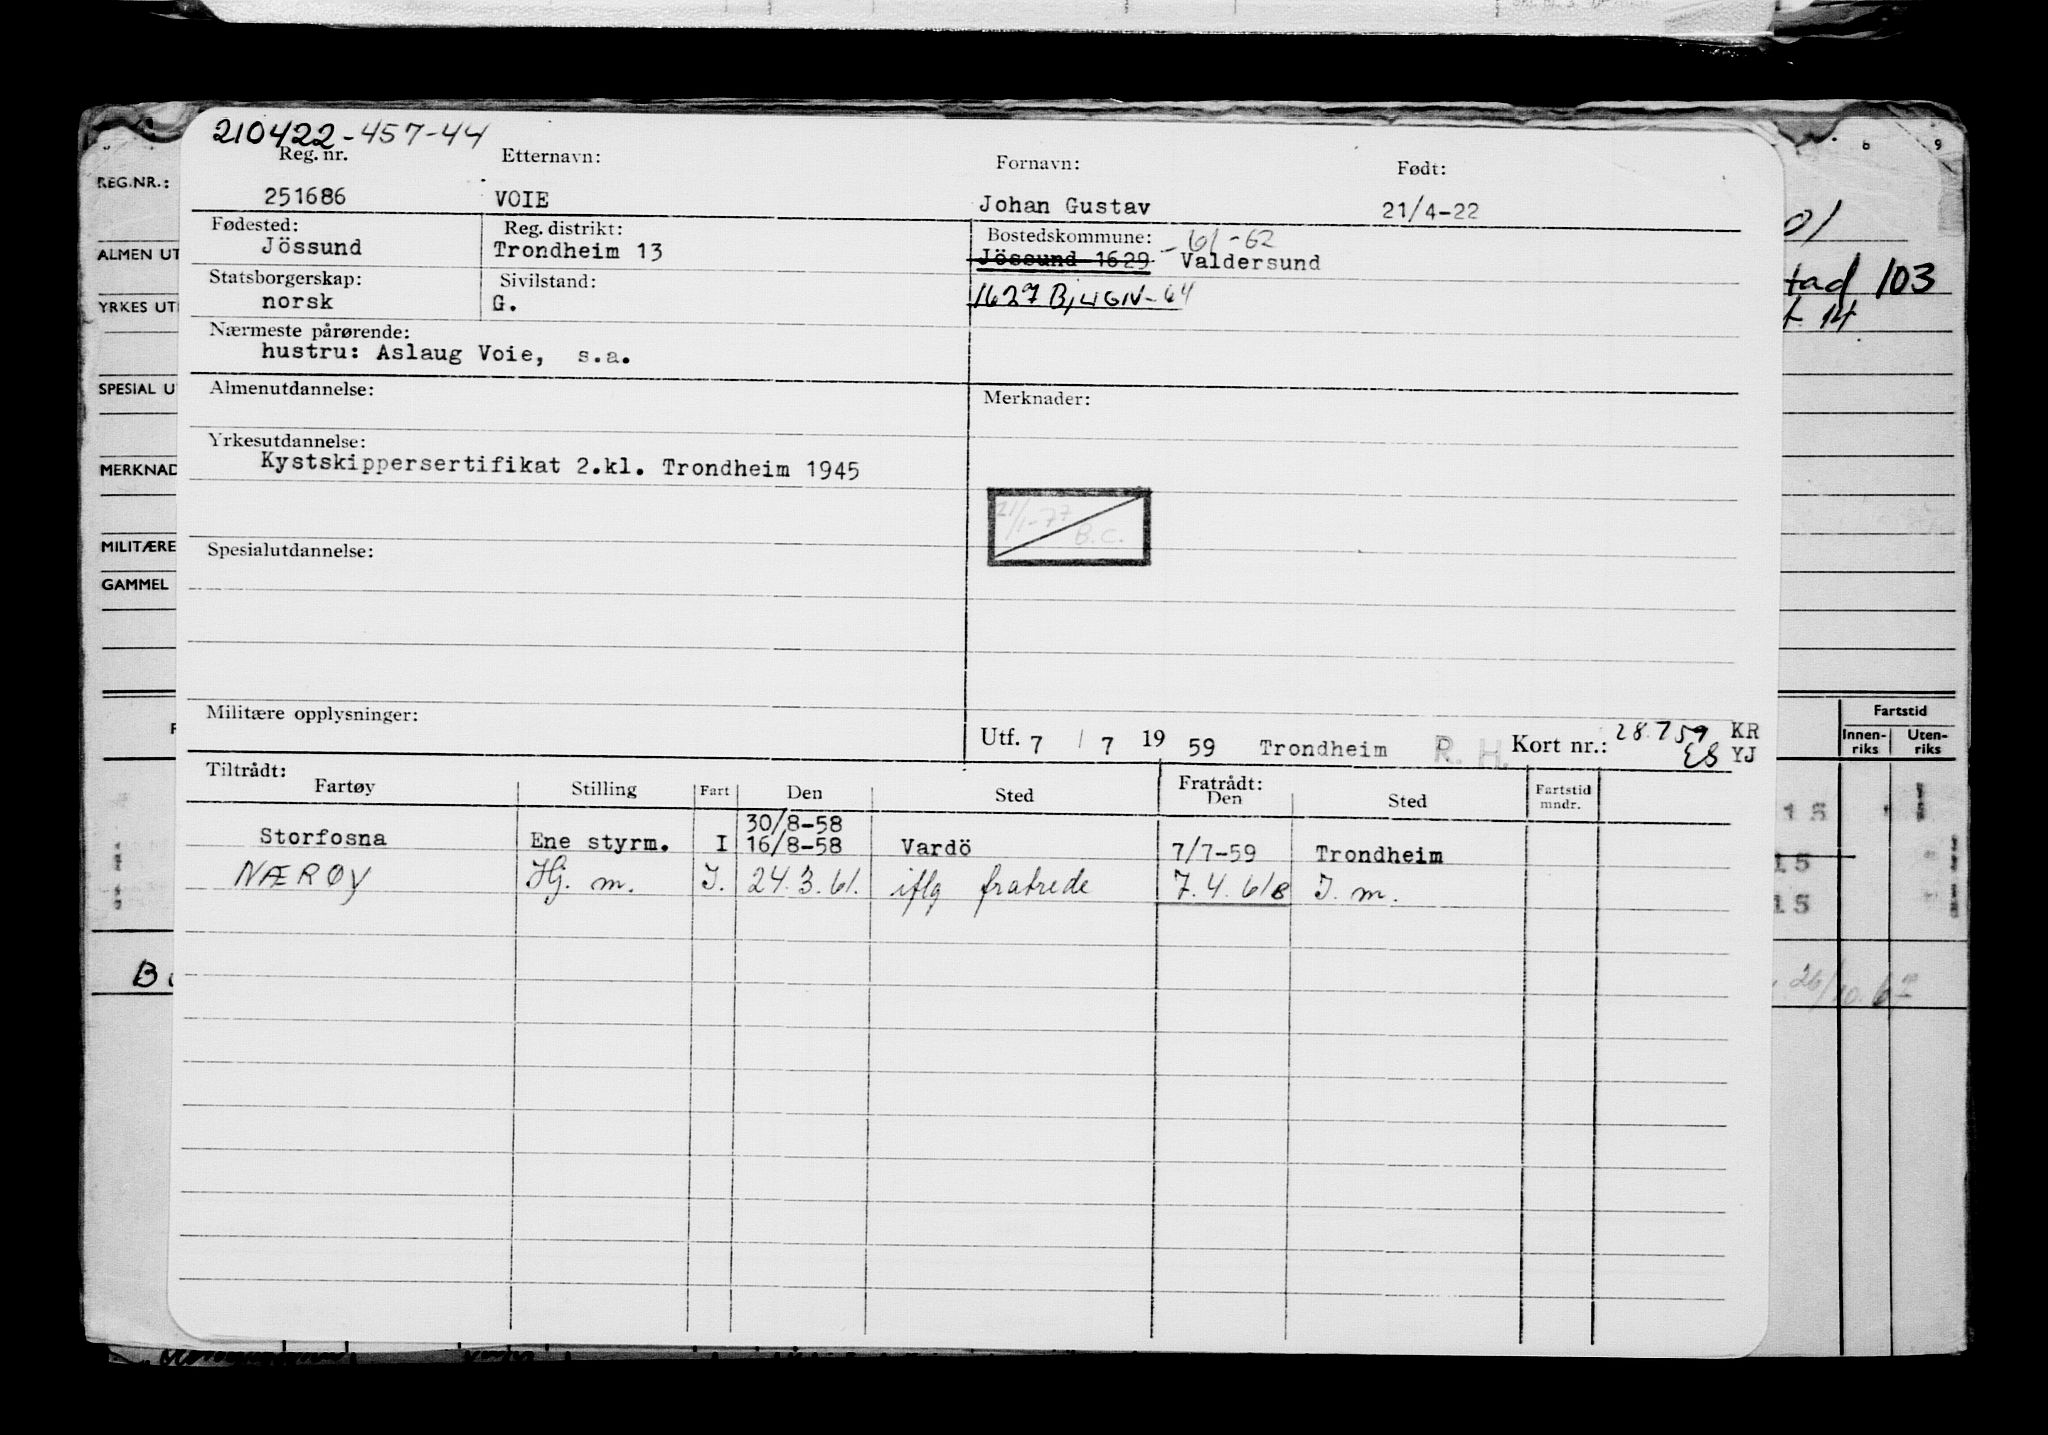 210422-457-44
Reg. nr. Etternavn: Fornavn: Født:
251686 VOIE Johan Gustav 21/4-22
Fødested: Reg. distrikt: Bostedskommune: - 61-62
Jössund Trondheim 13 Jössund 1629 Valdersund
Statsborgerskap: Sivilstand:
norsk G. 1627 Bjugn-64
Nærmeste pårørende:
hustru: Aslaug Voie, s.a.
Almenutdannelse: Merknader:
Yrkesutdannelse:
Kystskippersertifikat 2.kl. Trondheim 1945
21/1-77 B.C.
Spesialutdannelse:
Militære opplysninger:
Utf. 7 / 7 19 59 Trondheim R. H. Kort nr.: 28.7 59 KR
ES YJ
Tiltrådt: Fratrådt:
Fartøy Stilling Fart Den Sted Den Sted Fartstid mndr.
30/8-58
Storfosna Ene styrm. I 16/8-58 Vardö 7/7-59 Trondheim
NÆRØY Hj. m. I. 24.3.61. iflg fratrede 7.4.61 I. m.
REG.NR.:
ALMEN UT
YRKES UT
SPESIAL U
MERKNAD
MILITÆRE
GAMMEL
8 9
01
tad 103
14
Fartstid
Innen-riks Uten-riks
15
15
15
B
26/10.62